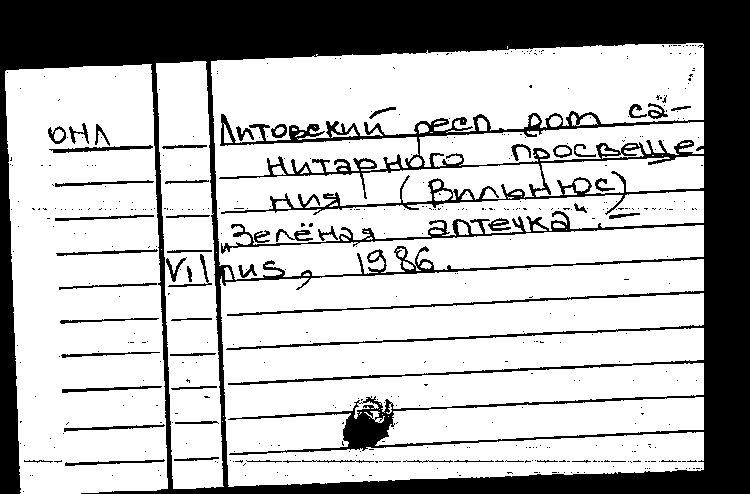 ОНЛ Литовский респ. дом са-
нитарного просвеще-
ния (Вильнюс)
„Зелёная аптечка“. –
Vilnus, 1986.